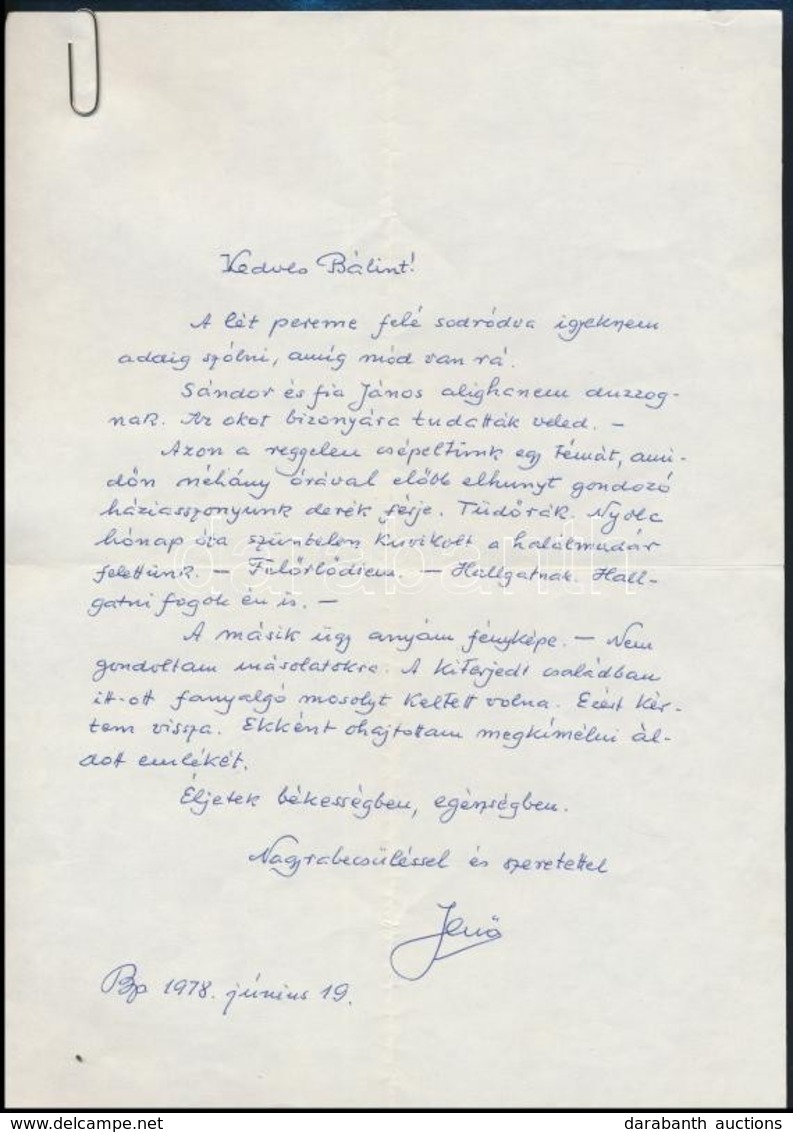 Kedves Bálint!
A lét pereme felé sodródva igyekszem
addig szólni, amíg mód van rá.
Sándor és fia János alighanem duzzog-
nak. Az okot bizonyára tudatták veled. –
Azon a reggelen csépeltünk egy témát, ami-
dőn néhány órával előbb elhunyt gondozó
háziasszonyunk derék férje. Tüdőrák. Nyolc
hónap óta szüntelen kuvikolt a halálmadár
felettünk. – Felőrlődtem. – Hallgatnak. Hall-
gatni fogok én is. –
A másik ügy anyám fényképe. – Nem
gondoltam másolatokra. A kiterjedt családban
itt-ott fanyalgó mosolyt keltett volna. Ezért kér-
tem vissza. Ekként óhajtottam megkímélni ál-
dott emlékét.
Éljetek békességben, egészségben.
Nagyrabecsüléssel és szeretettel
Jenő
Bp 1978. június 19.
darabanth
darabanth auctions